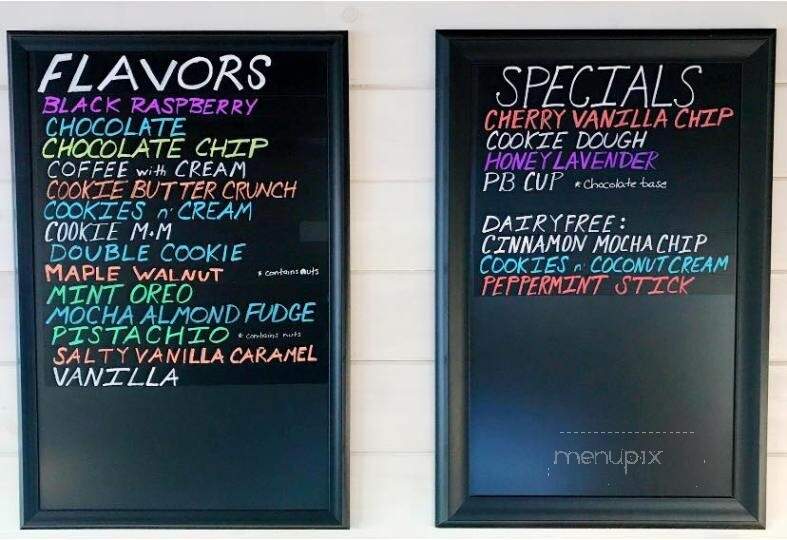 FLAVORS
BLACK RASPBERRY
CHOCOLATE
CHOCOLATE CHIP
COFFEE with CREAM
COOKIE BUTTER CRUNCH
COOKIES n' CREAM
COOKIE M.M
DOUBLE COOKIE
MAPLE WALNUT * contains nuts
MINT OREO
MOCHA ALMOND FUDGE
PISTACHIO * contains nuts
SALTY VANILLA CARAMEL
VANILLA
SPECIALS
CHERRY VANILLA CHIP
COOKIE DOUGH
HONEY LAVENDER
PB CUP * Chocolate base
DAIRY FREE:
CINNAMON MOCHA CHIP
COOKIES n' COCONUT CREAM
PEPPERMINT STICK
menupix